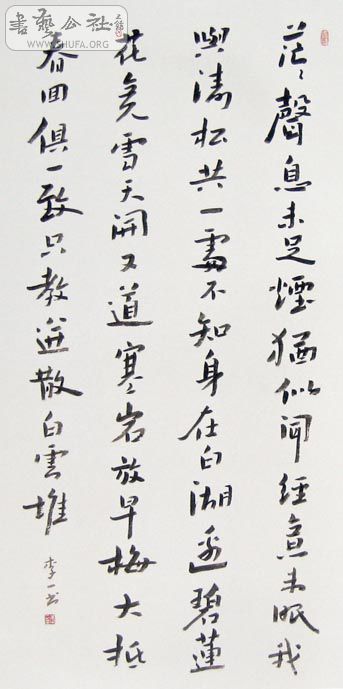 茫〻聲息未足煙猶似聞經意未眠我
與濤松共一處不知身在白湖邊碧蓮
花竟雪天開又道寒岩放早梅大抵
春回俱一致只教迸散白雲堆
李一书
書藝公社
WWW.SHUFA.ORG